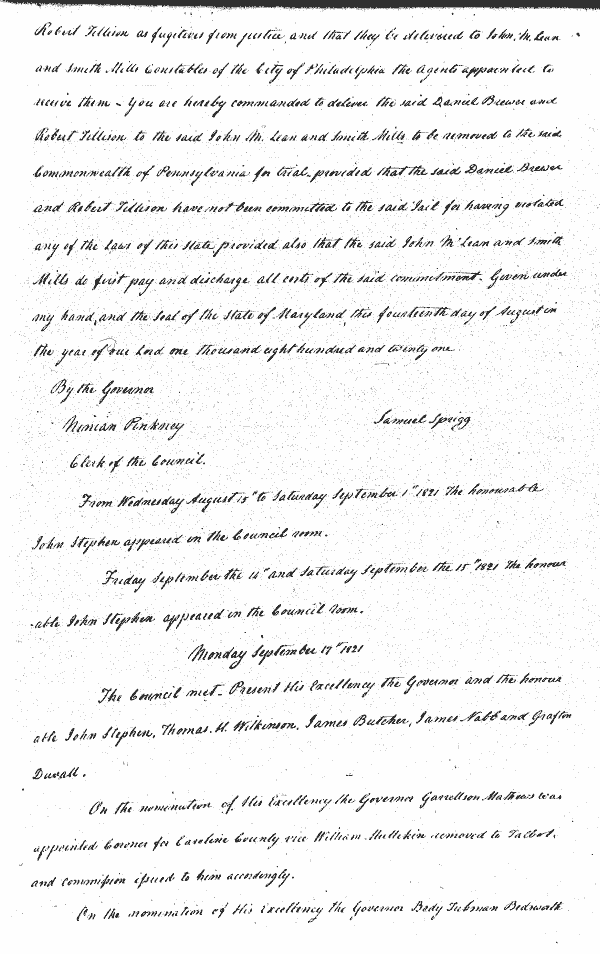 Robert Tillison as fugitives from justice, and that they be delivered to John M. Lean
and Smith Mills Constables of the City of Philadelphia the Agents appointed to
receive them – You are hereby commanded to deliver the said Daniel Brewer and
Robert Tillison to the said John M. Lean and Smith Mills to be removed to the said
Commonwealth of Pennsylvania for trial, provided that the said Daniel Brewer
and Robert Tillison have not been committed to the said Jail for having violated
any of the Laws of this State, provided also that the said John McLean and Smith
Mills do first pay and discharge all costs of the said commitment. Given under
my hand, and the Seal of the State of Maryland, this fourteenth day of August in
the year of our Lord one thousand eight hundred and twenty one.
By the Governor
Ninian Pinkney Samuel Sprigg
Clerk of the Council.
From Wednesday August 15" to Saturday September 1st 1821 The honourable
John Stephen appeared in the Council room.
Friday September the 14" and Saturday September the 15" 1821 The honour
-able John Stephen appeared in the Council room.
Monday September 17" 1821
The Council met – Present His Excellency the Governor and the honour
able John Stephen, Thomas H. Wilkinson, James Butcher, James Nabb and Grafton
Duvall.
On the nomination of His Excellency the Governor Garrettson Mathews was
appointed Coroner for Caroline County vice William Mullikin removed to Talbot,
and commission issued to him accordingly.
On the nomination of His Excellency the Governor Tubman Bedsworth